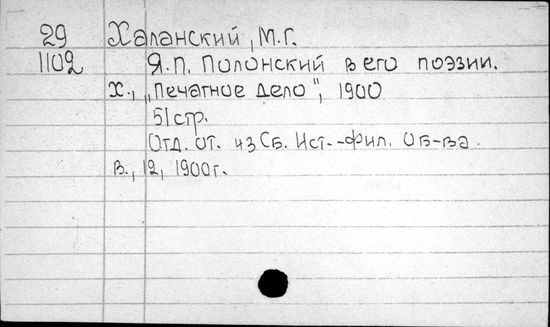 29 Халанский, М.Г.
1102 Я.П. Полонский в его поэзии.
Х., „Печатное дело", 1900
51 стр.
Отд. от. из Сб. Ист.-Фил. Об-ва.
в., 12, 1900г.